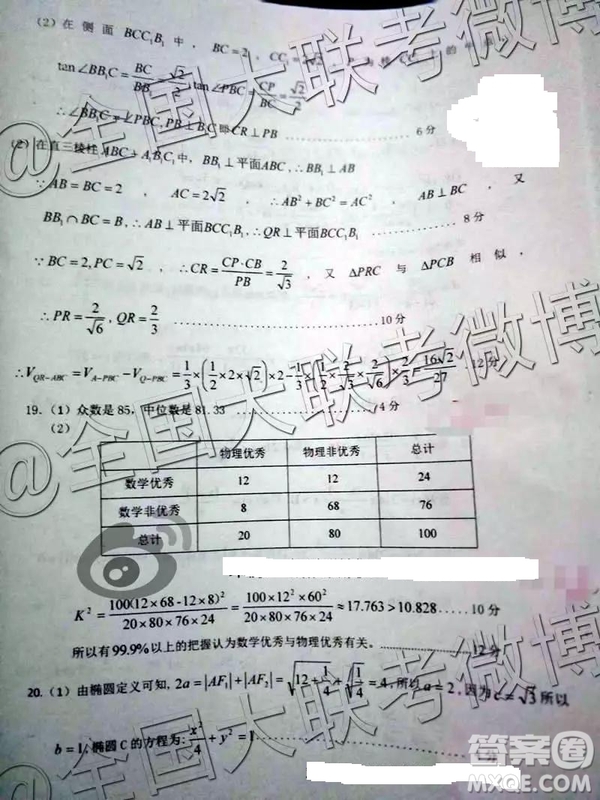 (2) 在侧面 BCC₁B₁ 中， BC=2， CC₁=2√2，
tan∠BB₁C = BC/BB₁ = √2/2 tan∠PBC = CP/BC = √2/2
∴∠BB₁C=∠PBC, PB⊥B₁C 即 CR⊥PB ……………… 6 分
(2) 在直三棱柱 ABC-A₁B₁C₁ 中，BB₁⊥平面ABC，∴BB₁⊥AB
∵AB=BC=2， AC=2√2 ∴AB²+BC²=AC²， AB⊥BC， 又
BB₁∩BC=B，∴AB⊥平面BCC₁B₁，∴QR⊥平面BCC₁B₁ ……………… 8 分
∵BC=2, PC=√2， ∴CR=CP·CB/PB=2/√3， 又 ΔPRC 与 ΔPCB 相似，
∴PR=2/√6, QR=2/3 ……………… 10 分
∴V_{QR-ABC}=V_{A-PBC}-V_{Q-PBC}=1/3×(1/2×2×√2)×2-1/3(1/2×2/√3×2/√6)×2/3=16√2/27 12 分
19. (1) 众数是 85，中位数是 81.33 ……………… 4 分
(2)
物理优秀 物理非优秀 总计
数学优秀 12 12 24
数学非优秀 8 68 76
总计 20 80 100
K²=100(12×68-12×8)²/(20×80×76×24)=100×12²×60²/(20×80×76×24)≈17.763>10.828 ……10 分
所以有 99.9% 以上的把握认为数学优秀与物理优秀有关。 ……12 分
20. (1) 由椭圆定义可知, 2a=|AF₁|+|AF₂|=√(12+1/4)+√(1/4)=4, 所以 a=2, 因为 c=√3 所以
b=1, 椭圆 C 的方程为: x²/4+y²=1
@全国大联考微博
@全国大联考微博
@全国大联考微博
答案圈
MXQE.COM